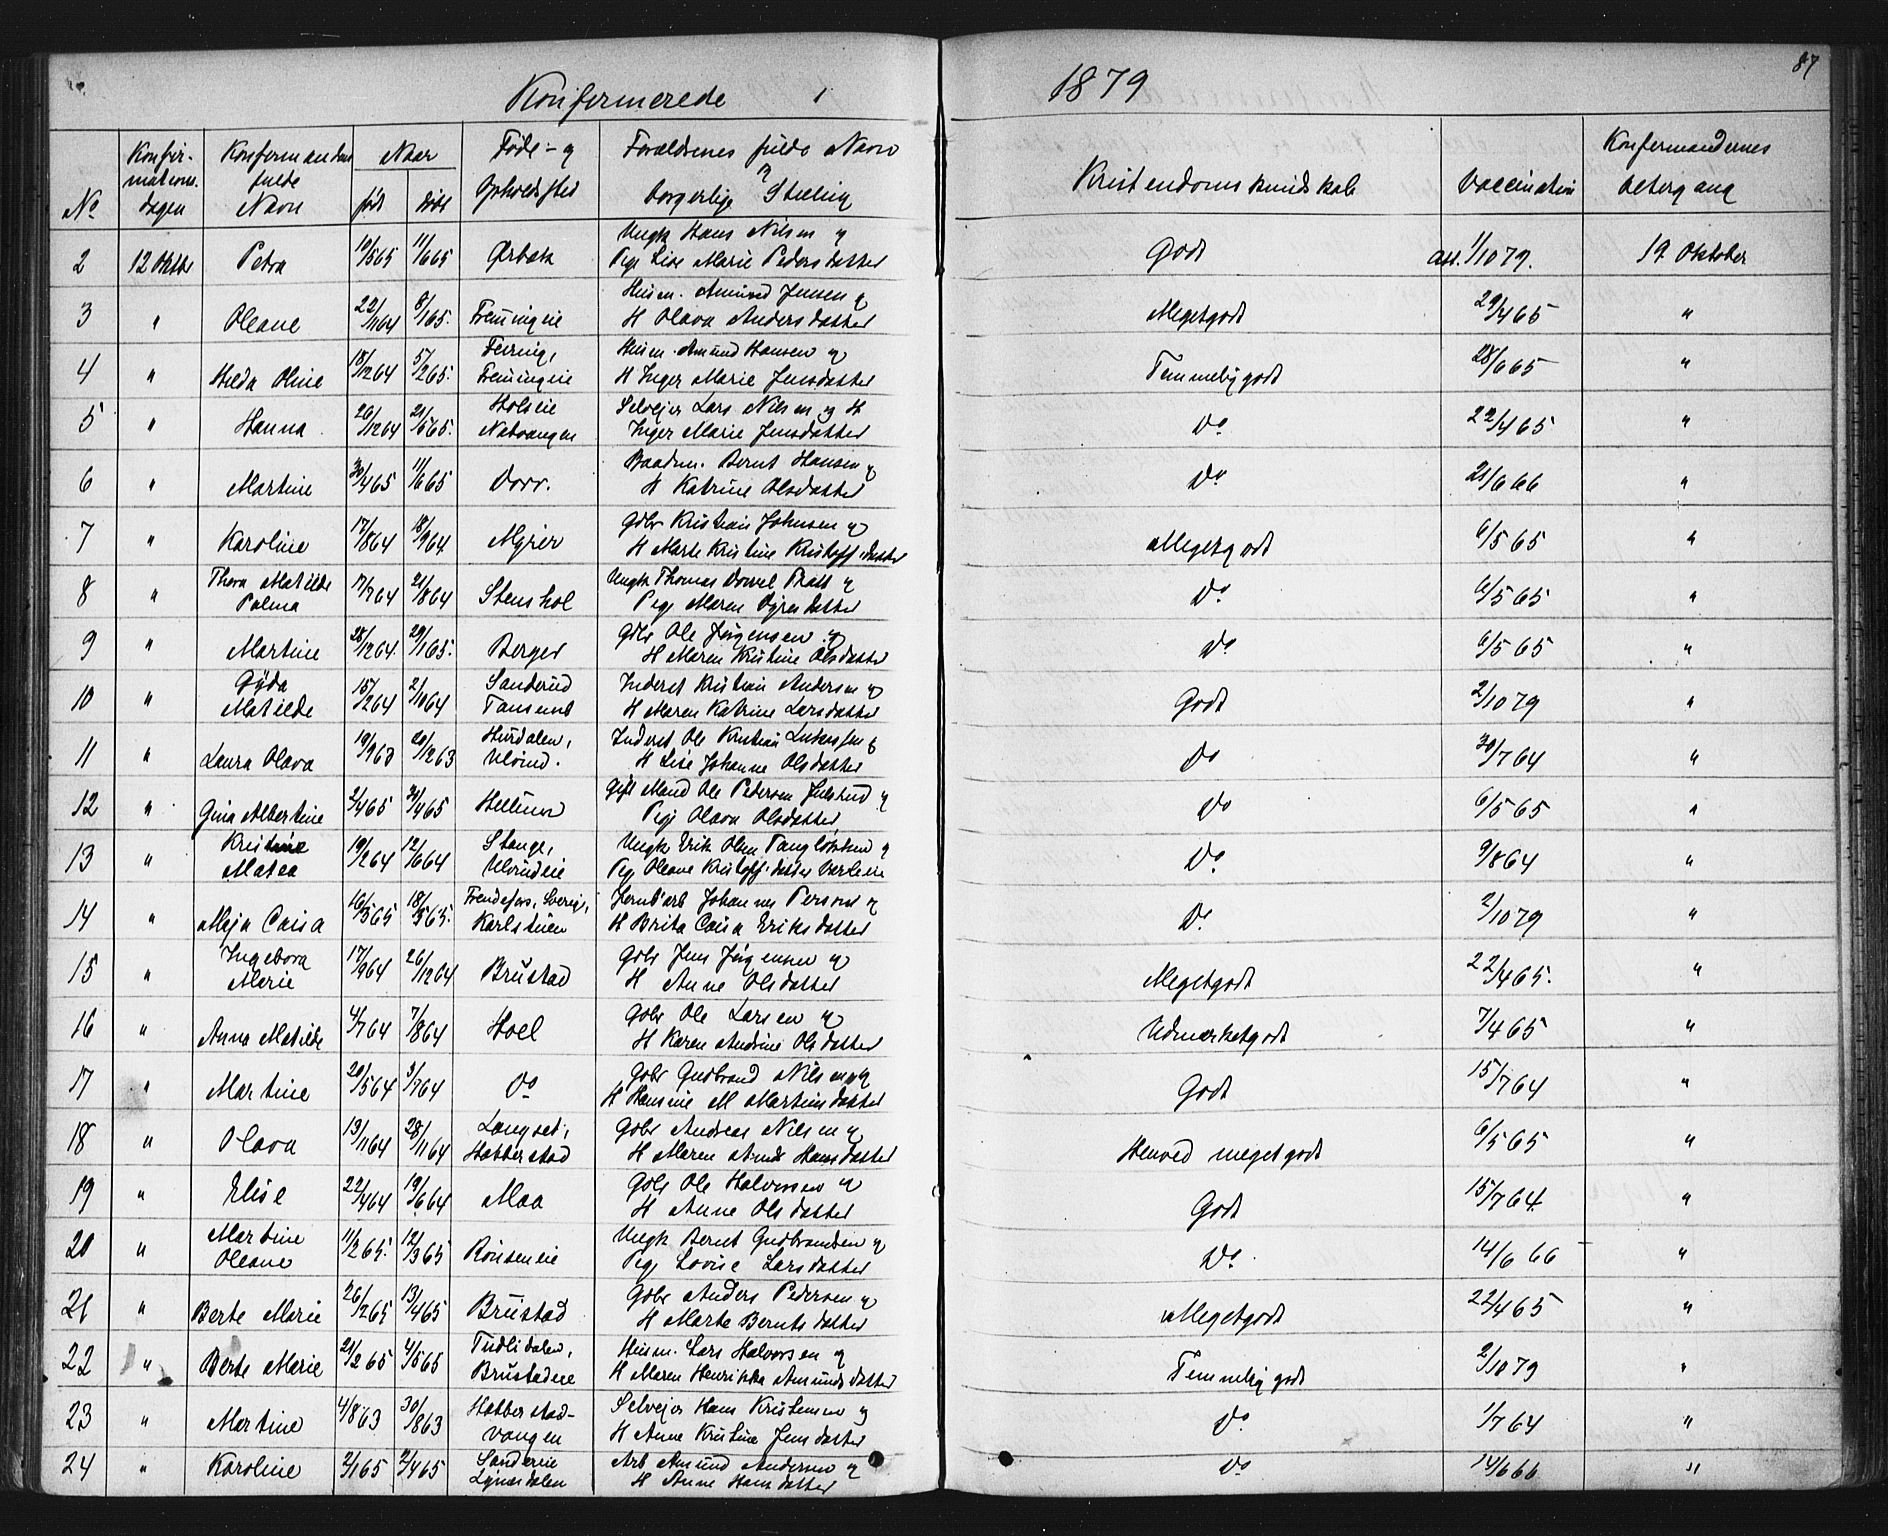 Konfermerede 1879
87
No
Konfir-
mations.
dagen
Konfermandens
fulde
Navn
Naar
født
døbt
Føde- og
Opholdssted
Forældrenes fulde Navn
og
borgerlige Stilling
Kristendomskundskab
Vaccination
Konfermandernes
altergang
2 12 Oktbr Petra 10/5 65 11/6 65 Ørbæk Ungk Hans Nilsen og
Pige Lise Marie Pedersdatter Godt att. 1/10 79. 19 Oktober
3 " Oleane 22/11 64 8/1 65. Freningeie Husm. Amund Jensen og
H Olava Andersdatter Megetgodt 29/4 65 "
4 " Hilda Oline 18/12 64 5/2 65. Feiring,
Freningeie Husm. Amund Hansen og
H Inger Marie Jensdatter Temmelig godt 28/6 65 "
5 " Hanna 26/12 64 21/5 65. Holseie
Selvejer Lars Nilsen og H
Inger Marie Jensdatter Do 22/4 65 "
6 " Martine 30/4 65 11/6 65 Dorr. Baadm. Bernt Hansen og
H Katrine Olsdatter Do 21/6 66 "
7 " Karoline 17/8 64 18/9 64 Gdbr Kristian Johnsen og
H Marte Kristine Kristoffsdatter Megetgodt 6/5 65 "
8 " Thora Matilde
Palma 17/7 64 21/8 64 Stenshol Ungk Thomas
Pige Maren Do 6/5 65 "
9 " Martine 28/12 64 29/1 65. Berger Gdbr Ole Jørgensen og
H Maren Kristine Olsdatter Do 6/5 65 "
10 " Gyda
Matilde 15/2 64 2/10 64 Sanderud
Inderst Kristian Andersen og
H Maren Katrine Larsdatter Godt 2/10 79 "
11 " Laura Olava 19/9 63 20/12 63 Hurdalen,
Ulvind. Inderst Ole Kristian og
H Lise Johanne Olsdatter Do 30/7 64 "
12 " Gina Albertine 2/4 65 Gift Mand Ole Pedersen Julsrud og
Pige Olava Olsdatter Do 6/5 65 "
13 " Kristine
Matea 19/2 64 12/6 64 Stange,
Ulvindeie Ungk Erik Olsen og
Pige Oleane Kristoffsdatter Do 9/8 64 "
14 " Maja Caisa 16/5 65 18/5 65. Sverige,
Karlstuen Jernbarb Johannes Person og
H Brita Caisa Eriksdatter Do 2/10 79 "
15 " Ingebora
Marie 17/9 64 26/12 64 Brustad Gdbr Jens Jörgensen og
H Anne Olsdatter Megetgodt 22/4 65. "
16 " Anna Matilde 4/7 64 7/8 64 Hoel Gdbr Ole Larsen og
H Karen Andrine Olsdatter Udmærketgodt 7/4 65 "
17 " Martine 20/5 64 3/7 64 Do Gdbr Gudbrand Nilsen og
H Hansine M Martinsdatter Godt 15/7 64 "
18 " Olava 13/11 64 28/11 64 Langset,
Habberstad Gdbr Andreas Nilsen og
H Maren Hansdatter Henved megetgodt 6/5 65 "
19 " Elise 22/4 64 19/6 64 Maa Gdbr Ole Halvorsen og
H Anne Olsdatter Godt 15/7 64. "
20 " Martine
Oleane 11/2 65. 12/3 65 Rönseneie Ungk Bernt Gudbrandsen og
Pige Lovise Larsdatter Do 14/6 66 "
21 " Berte Marie 26/2 65 13/4 65 Brustad Gdbr Anders Pedersen og
H Marte Berntsdatter Megetgodt 22/4 65 "
22 " Berte Marie 21/2 65 4/5 65 Tudlidalen,
Brustadeie Husm. Lars Halvorsen og
H Maren Henrikka Amundsdatter Temmelig godt 2/10 79 "
23 " Martine 4/8 63 30/8 63 Habberstad-
vangen Selvejer Hans Kristensen og
H Anne Kristine Jensdatter Do 1/7 64 "
24 " Karoline 2/1 65 2/4 65 Sandereie
Arb Amund Andersen og
H Anne Hansdatter Do 14/6 66 "